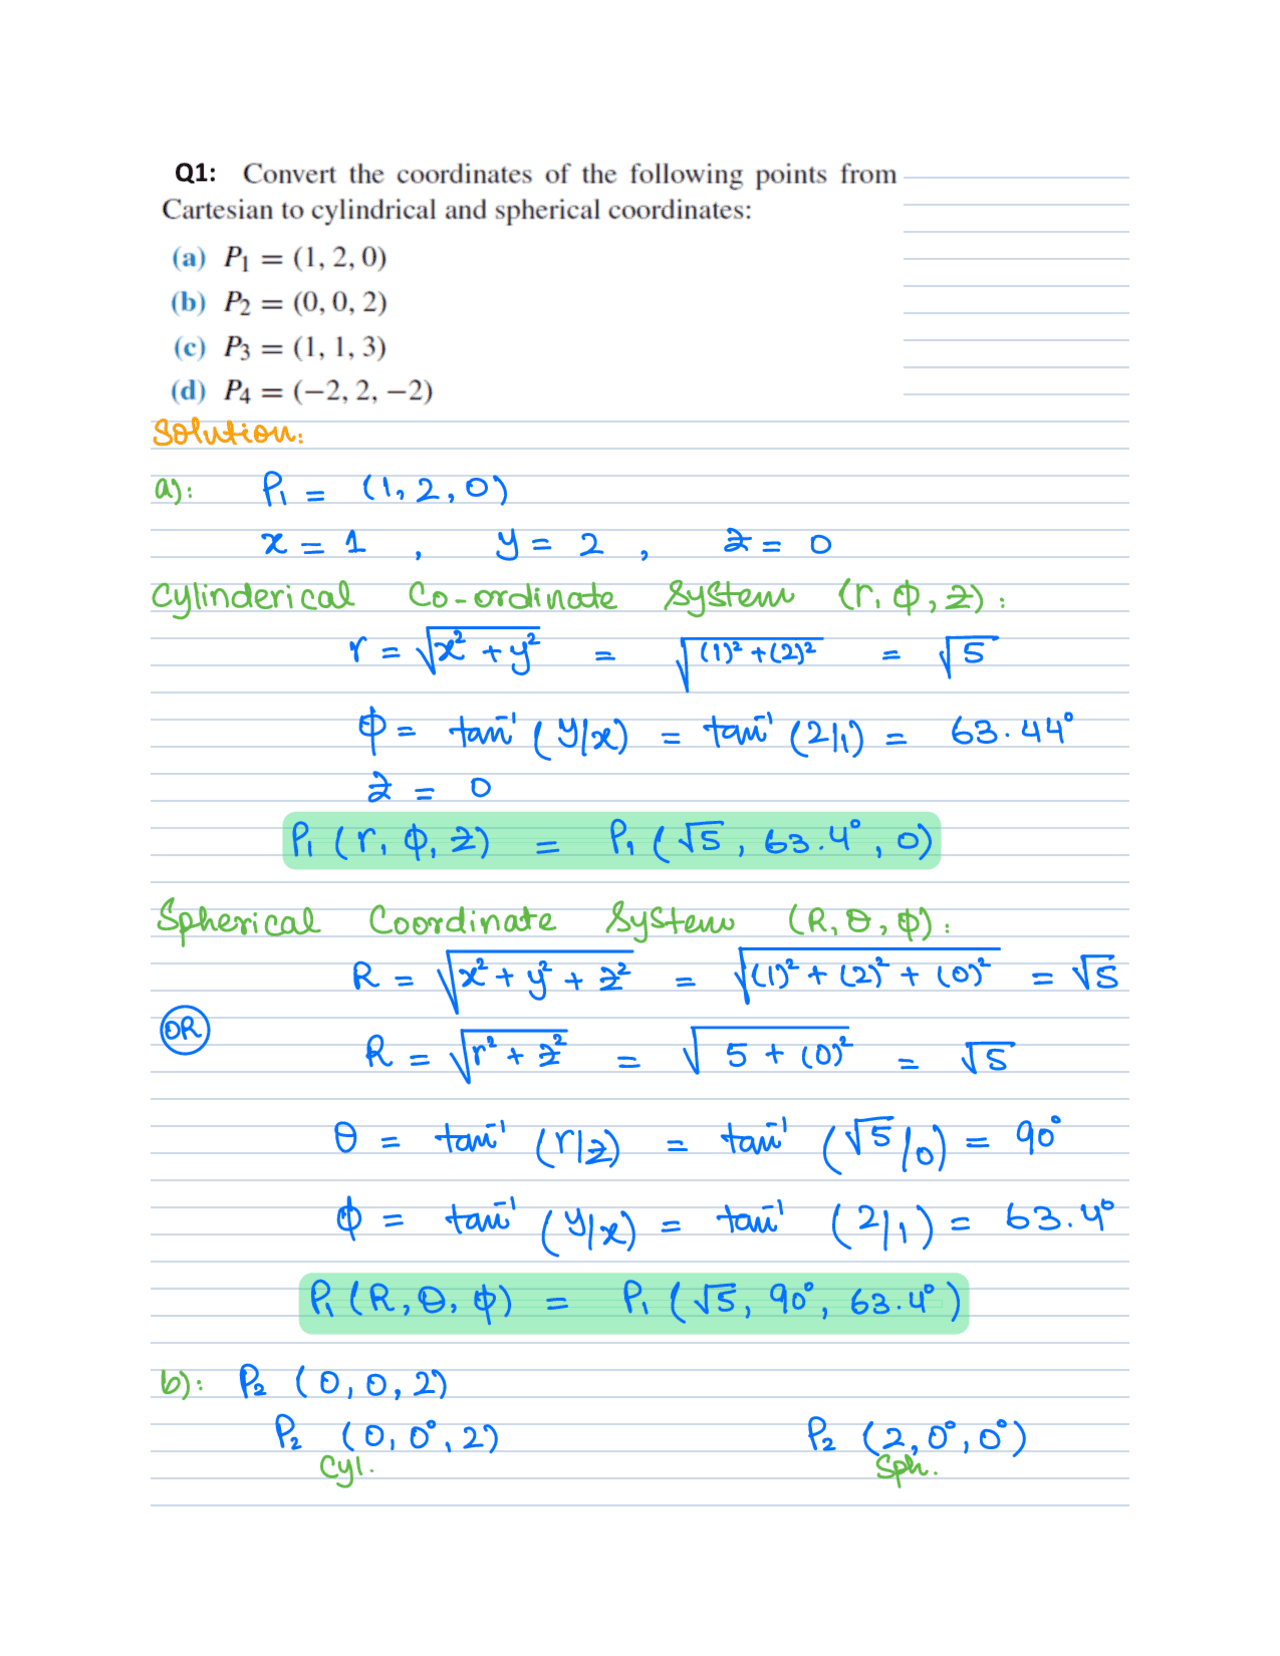 Q1: Convert the coordinates of the following points from
Cartesian to cylindrical and spherical coordinates:
(a) P₁ = (1, 2, 0)
(b) P₂ = (0, 0, 2)
(c) P₃ = (1, 1, 3)
(d) P₄ = (−2, 2, −2)
Solution:
a): P₁ = (1, 2, 0)
x = 1 , y = 2 , z = 0
Cylinderical Co-ordinate System (r, ϕ, z) :
r = √(x² + y²) = √((1)² + (2)²) = √5
ϕ = tan⁻¹ (y/x) = tan⁻¹ (2/1) = 63.44°
z = 0
P₁ (r, ϕ, z) = P₁ (√5, 63.4°, 0)
Spherical Coordinate System (R, θ, ϕ) :
R = √(x² + y² + z²) = √((1)² + (2)² + (0)²) = √5
OR R = √(r² + z²) = √(5 + (0)²) = √5
θ = tan⁻¹ (r/z) = tan⁻¹ (√5/0) = 90°
ϕ = tan⁻¹ (y/x) = tan⁻¹ (2/1) = 63.4°
P₁ (R, θ, ϕ) = P₁ (√5, 90°, 63.4°)
b): P₂ (0, 0, 2)
P₂ (0, 0°, 2) P₂ (2, 0°, 0°)
Cyl. Sph.